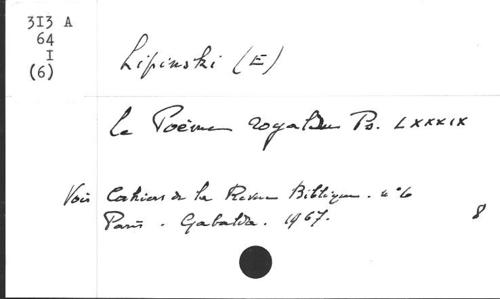 313 A
64
I
(6)
Lipinski (E)
Le Poème royal du Ps. LXXXIX
Voir Cahiers de la Revue Biblique. n° 6
Paris. Gabalda. 1967.
8